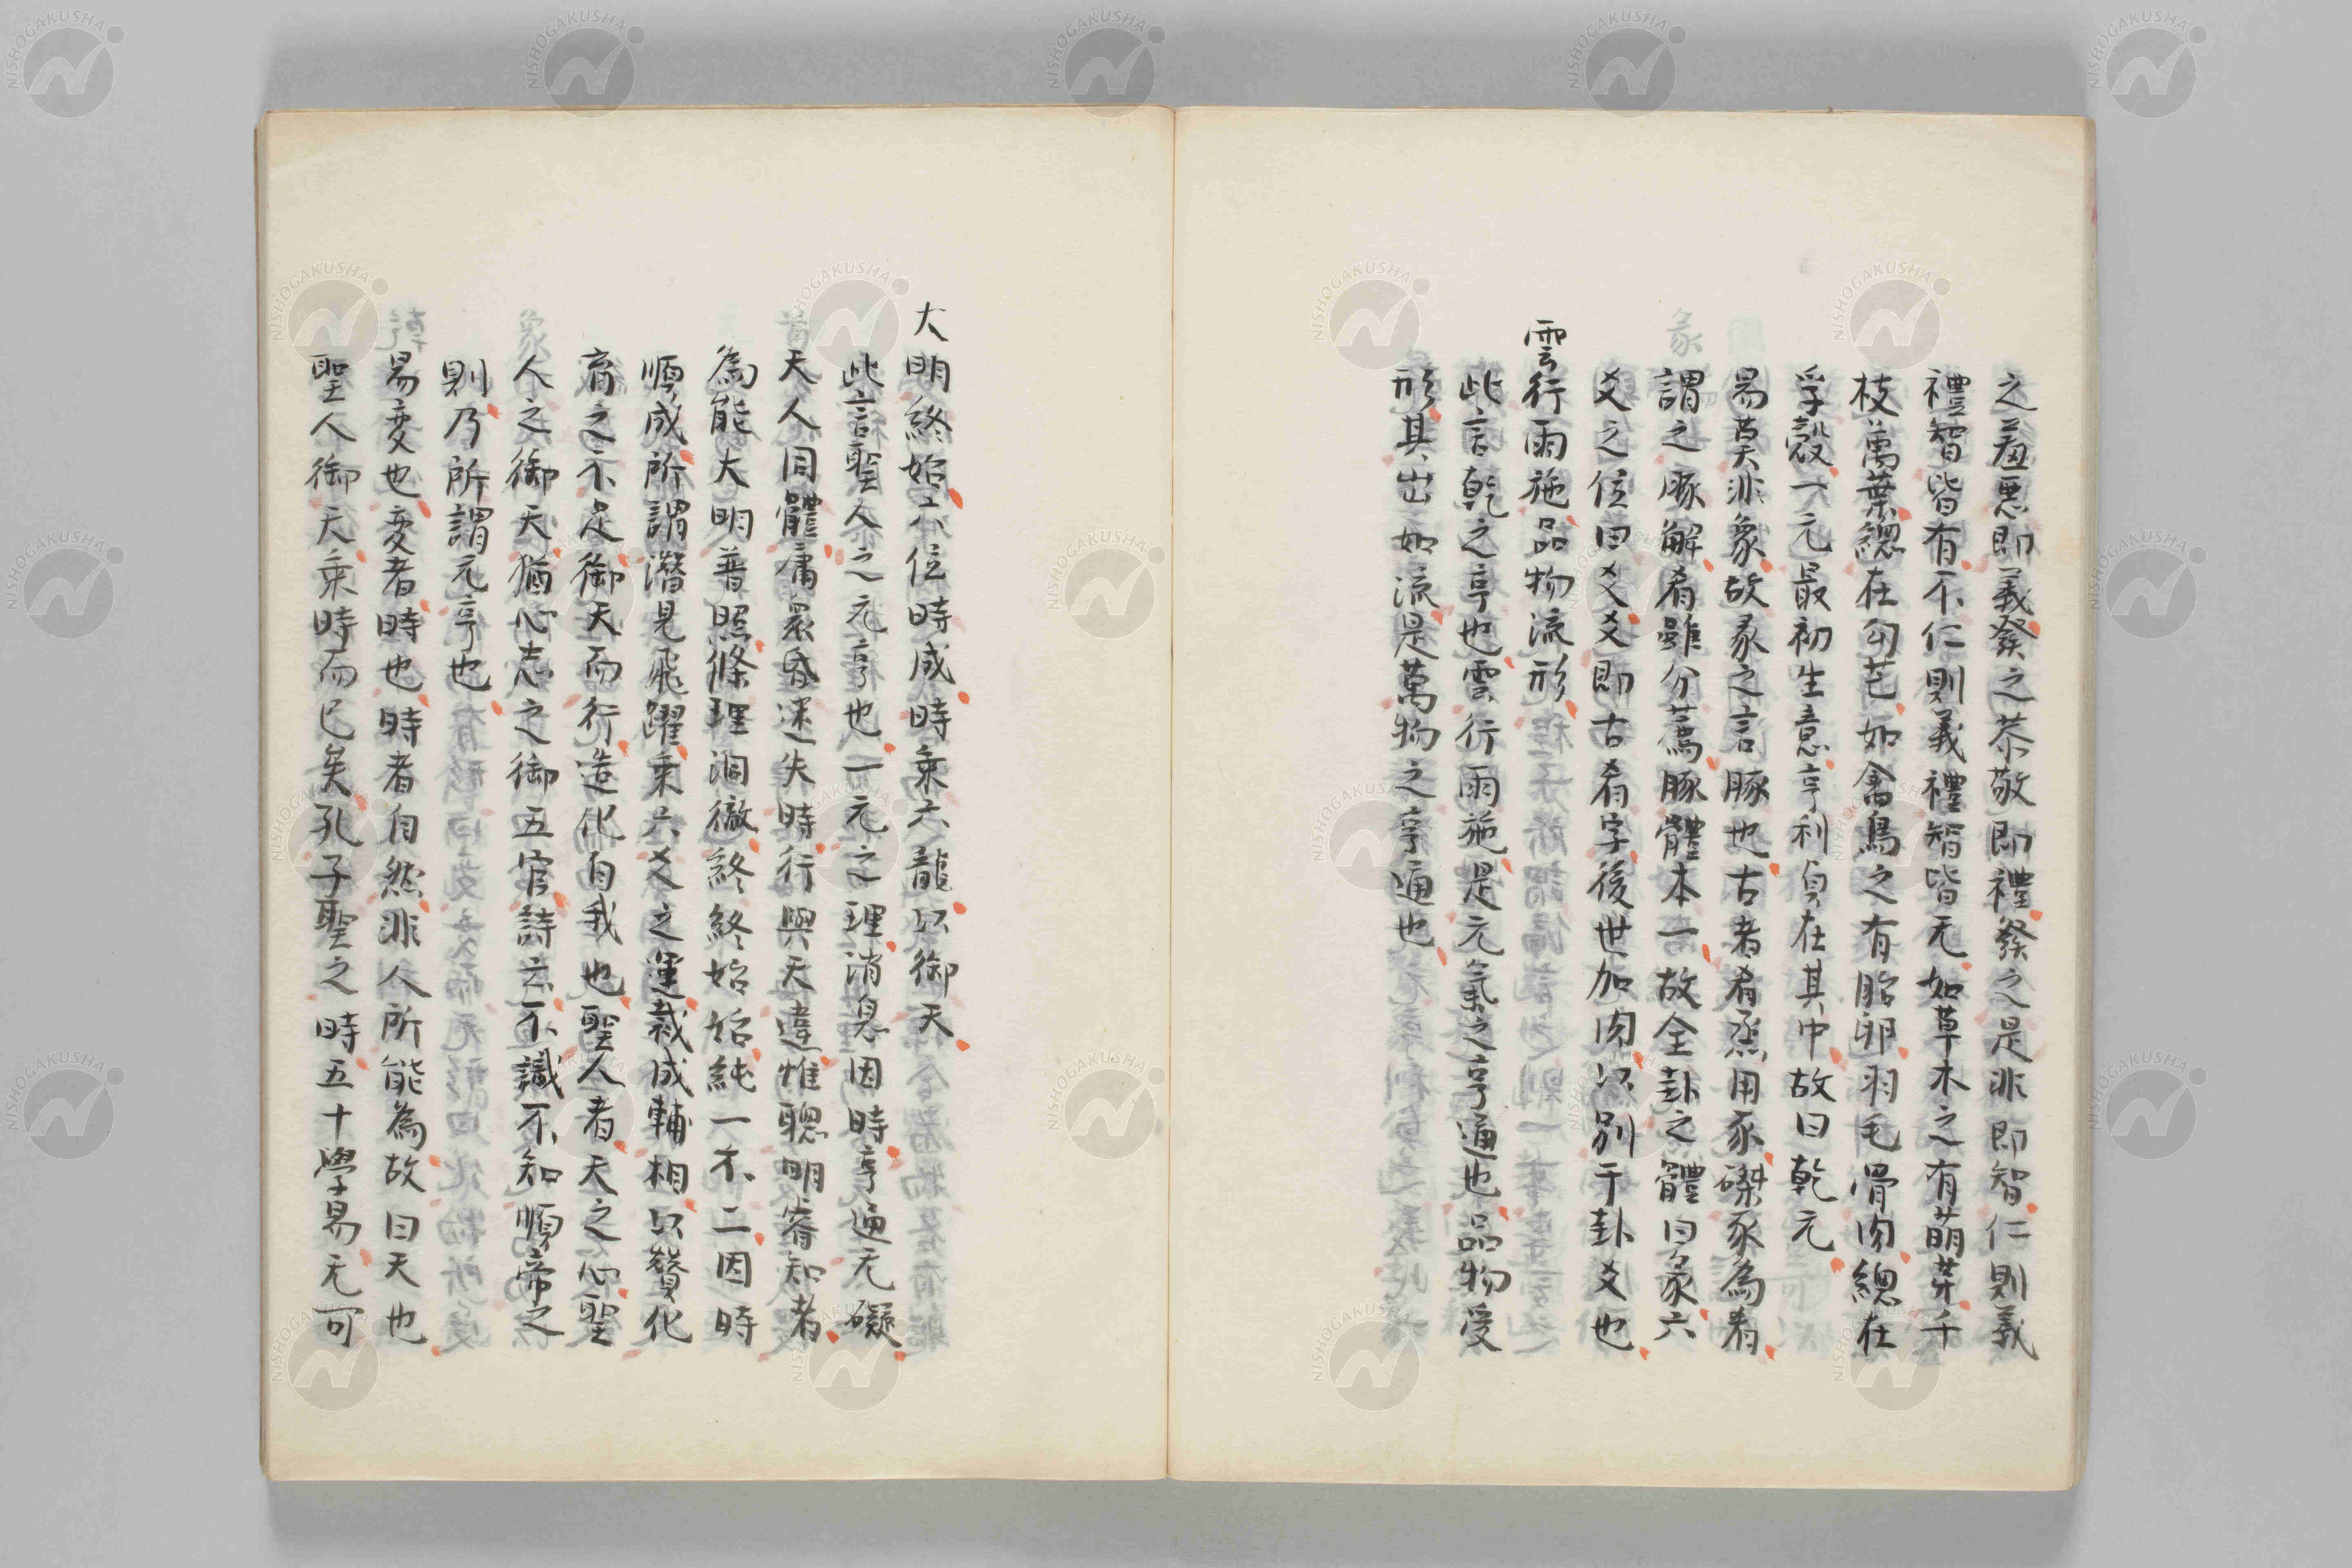 之羞惡即義發之恭敬即禮發之是非即智仁則義
禮智皆有不仁則義禮智皆无如草木之有萌芽千
枝萬葉總在勾芒如禽鳥之有胎卵羽毛骨肉總在
孚殼一元最初生意亨利貞在其中故曰乾元
易莫非象故彖之言豚也古者肴烝用豕磔豕為肴
謂之豚解肴雖分薦豚體本一故全卦之體曰彖六
爻之位曰爻爻即古肴字後世加肉以別于卦爻也
雲行雨施品物流形
此言乾之亨也雲行雨施是元氣之亨通也品物受
形其出如流是萬物之亨通也
大明終始六位時成時乘六龍以御天
此言聖人之元亨也一元之理消息因時亨通无礙
天人同體庸衆昏迷失時行與天違惟聰明睿知者
為能大明普照條理洞徹終終始始純一不二因時
順成所謂潛見飛躍乘六爻之運裁成輔相以贊化
育之不足御天而行造化自我也聖人者天之心聖
人之御天猶心志之御五官詩云不識不知順帝之
則乃所謂元亨也
易變也變者時也時者自然非人所能為故曰天也
聖人御天乘時而已矣孔子聖之時五十學易无可
NISHOGAKUSHA